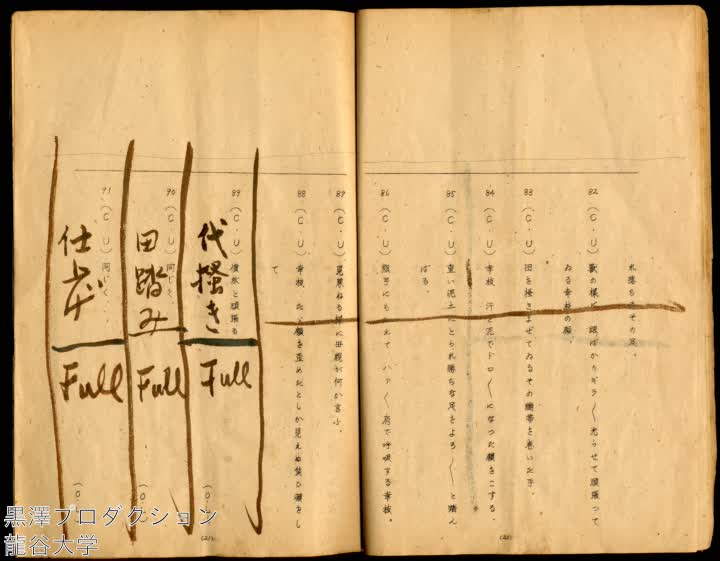 れ勝ちのその足。
82（C・U）獣の様に、眼ばかりギラ〱光らせて頑張って
ゐる幸枝の顔。
83（C・U）田を掻きまぜてゐるその繃帯を巻いた手。
84（C・U）幸枝、汗と泥でドロ〱になった顔をこする。
85（C・U）重い泥土にとられ勝ちな足をよろ〱と踏ん
ばる。
86（C・U）顎でにもえて ハァ〱肩で呼吸する幸枝。
87（C・U）見兼ねる様に母親が何か言ふ。
88（C・U）幸枝、たゞ顔を歪めたとしか見えぬ笑ひ顔をし
て
89（C・U）憤然と頑張る
代掻き
Full
90（C・U）同じく、
田踏み
Full
91（C・U）同じく、
仕上げ
Full
(21)
黒澤プロダクション
龍谷大学